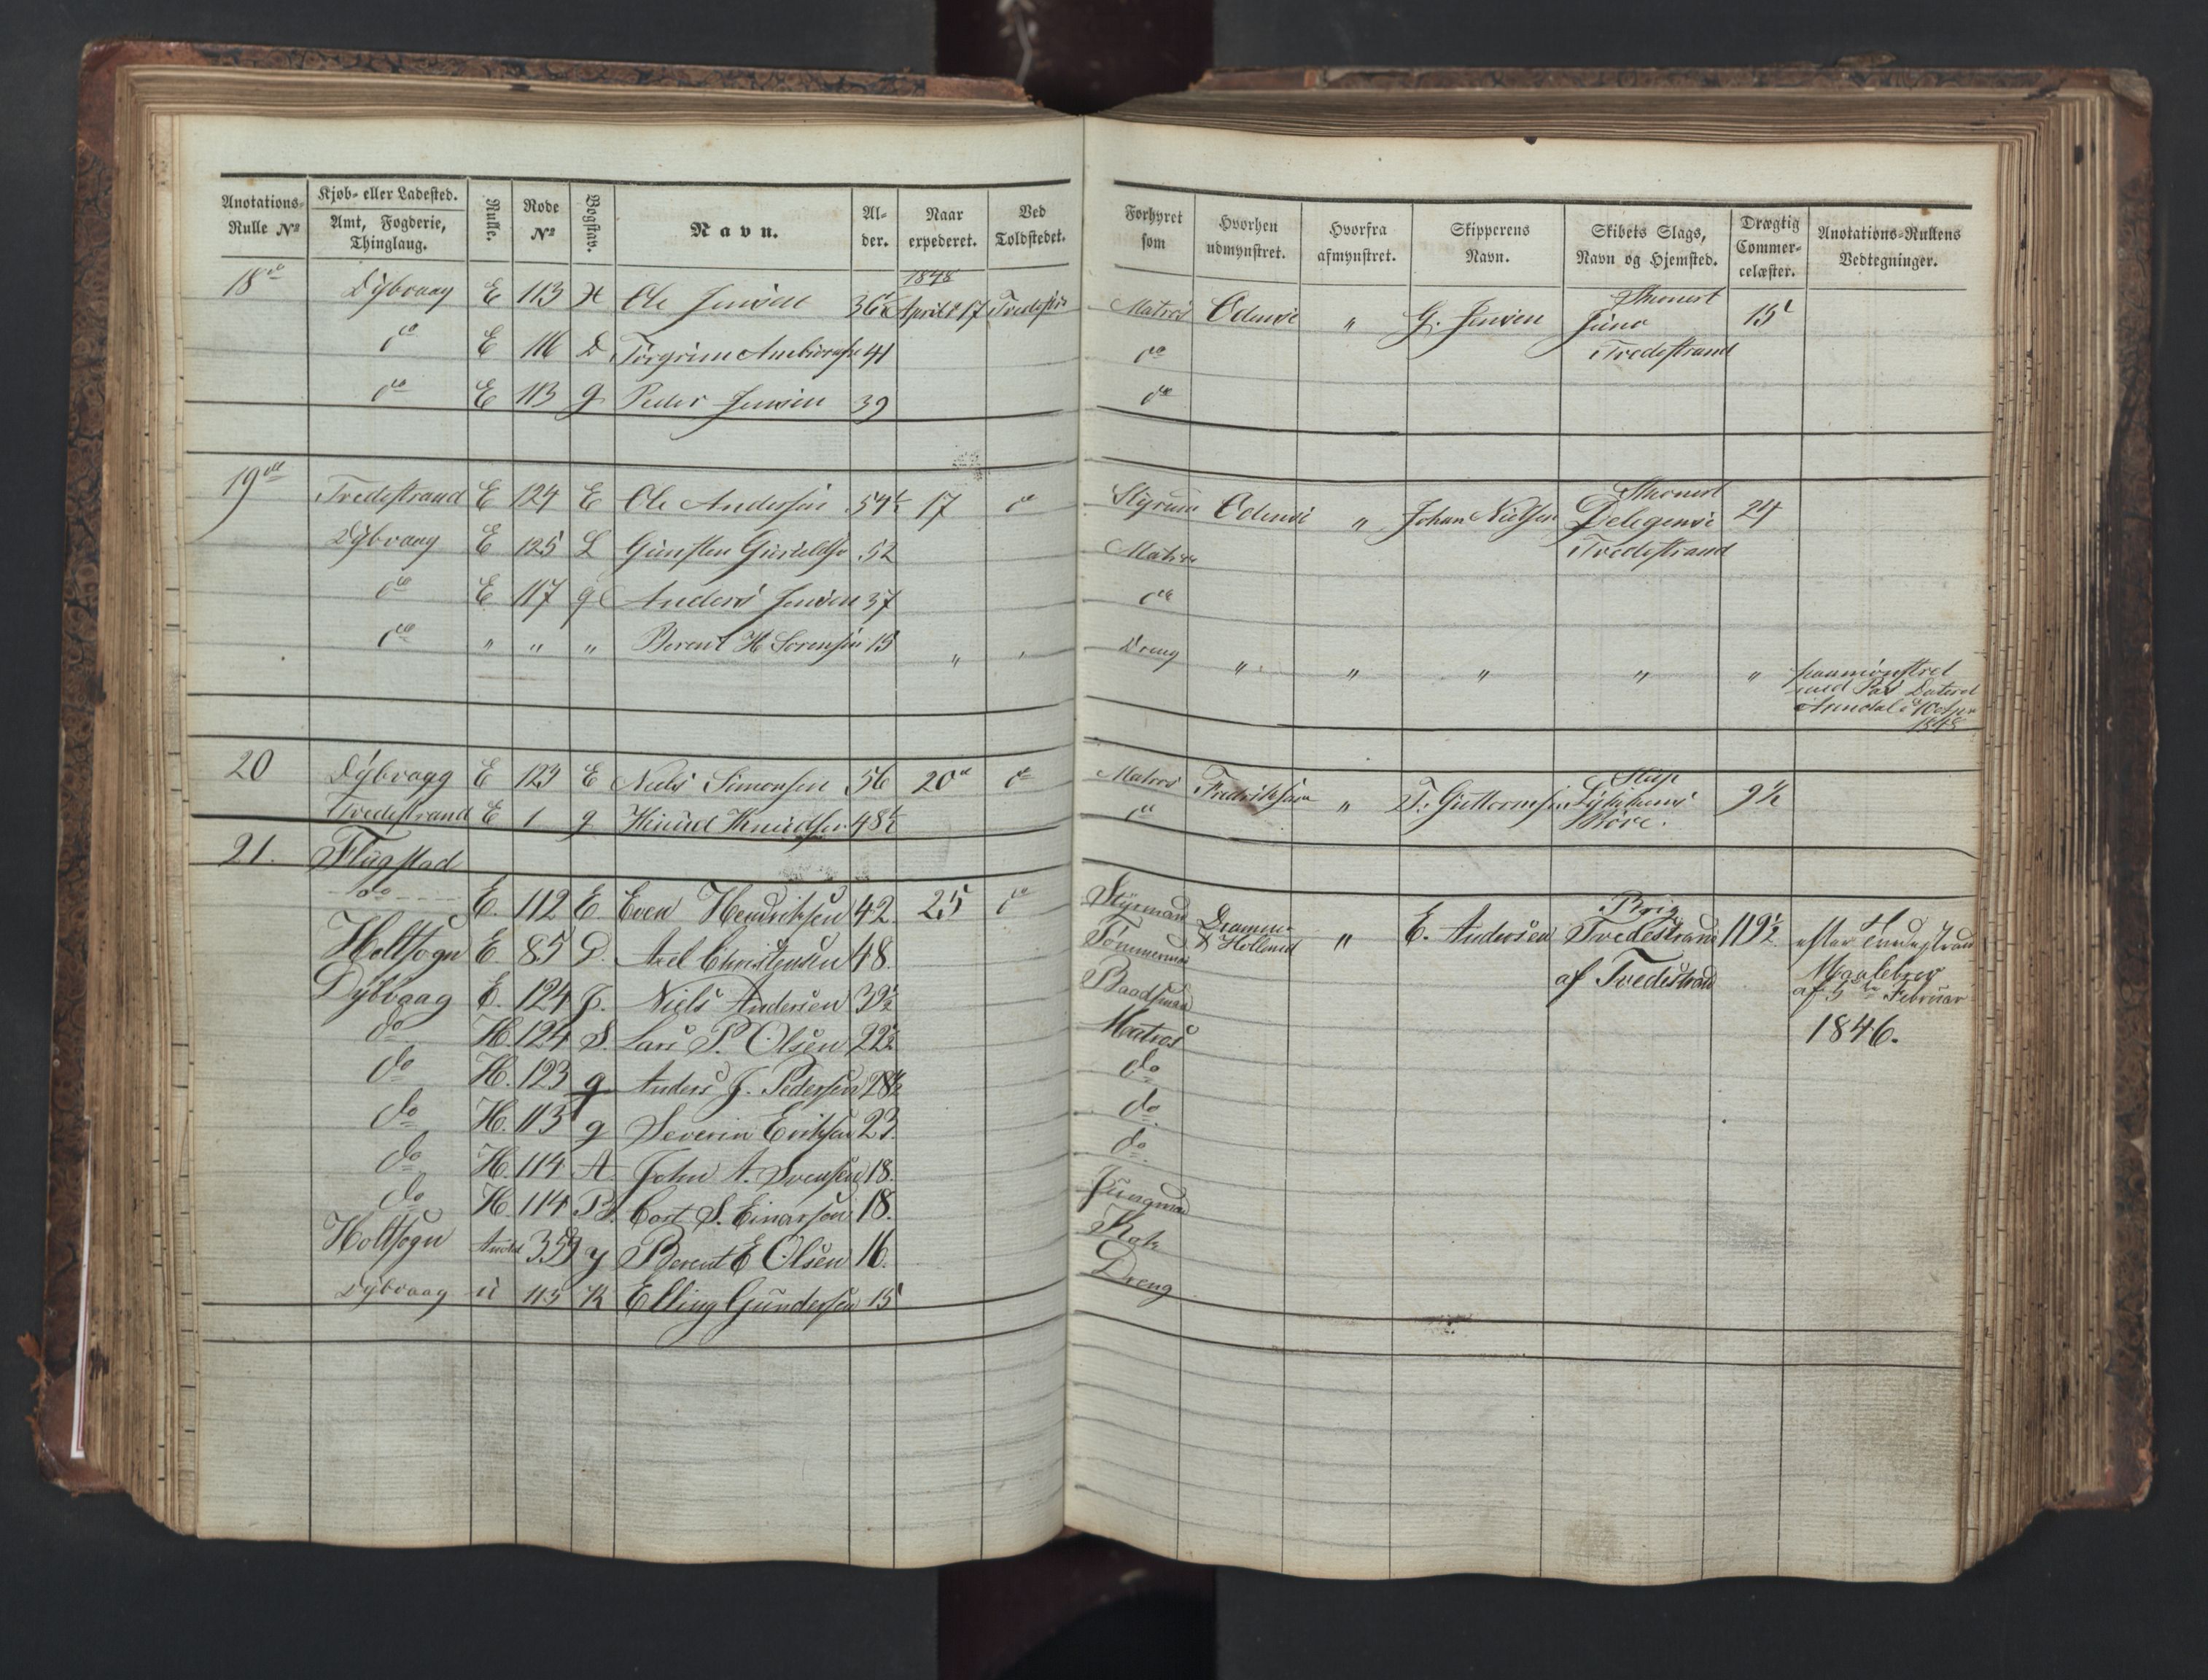 Anotations-Rulle № | Kjøb- eller Ladested. Amt, Fogderie, Thinglaug. | Rulle. | Rode № | Bogstav. | Navn. | Alder. | Naar expederet. | Ved Toldstedet. | Forhyret som | Hvorhen udmynstret. | Hvorfra afmynstret. | Skipperens Navn. | Skibets Slags, Navn og Hjemsted. | Drægtig Commercelæster. | Anotations-Rullens Vedtegninger.
18 | Dybvaag | E | 113 | H | Ole Jensen | 36½ | 1848 April 17 | | Matros | Odense | " | G. Jensen | Skonert Juno | 15
do | E | 116 | D | Torgrim | 41 | do | Tvedestrand
do | E | 113 | g | Peder Jensen | 39 | do
19 | Tvedestrand | E | 124 | E | Ole Andersen | 54½ | 17 | do | Styrm | Odense | " | Johan Nielsen | Skonert | 24
Dybvaag | E | 125 | L | Gunsten | 52 | Matros | Tvedestrand
do | E | 117 | g | Anders Jensen | 37 | do
do | " | " | " | Berent H Sorensen | 15 | " | " | Dreng | " | " | " | " | " | paamønstret
med Pas Dateret
Arendal
1848
20 | Dybvagg | E | 123 | E | Niels Simonsen | 56 | 20 | do | Matros | | " | T. Guttormsen | Slup | 9½
Tvedestrand | E | 1 | g | Knud Knudsen | 48½ | do
21. | Flagstad
do | E. | 112 | E | Even Hendriksen | 42. | 25 | do | Styrmand | Dramm. & Holland | " | E. Andersen | Brig Tvedestrand | 119½ | efter
Holtsogn | E. | 85 | D. | Axel Christensen | 48. | Tømmermd | af Tvedestrand | Maalebrev
Dybvaag | E. | 124 | F. | Niels Andersen | 39½ | Baadsmand | af 5te Februar
do | H. | 124 | S. | Lars P. Olsen | 22½ | Matros | 1846.
do | H. | 123 | g | Anders J. Pedersen | 28½ | do
do | H. | 113 | g | Severin Eriksen | 23. | do
do | H. | 114 | A. | John A. Svensen | 18. | do
do | H. | 114 | B. | S. Einarsen | 18. | Jungmand
Holtsogn | | 359 | y | Berent E Olsen | 16. | Kok
Dybvaag | " | 113 | K | Elling Gundersen | 15 | Dreng